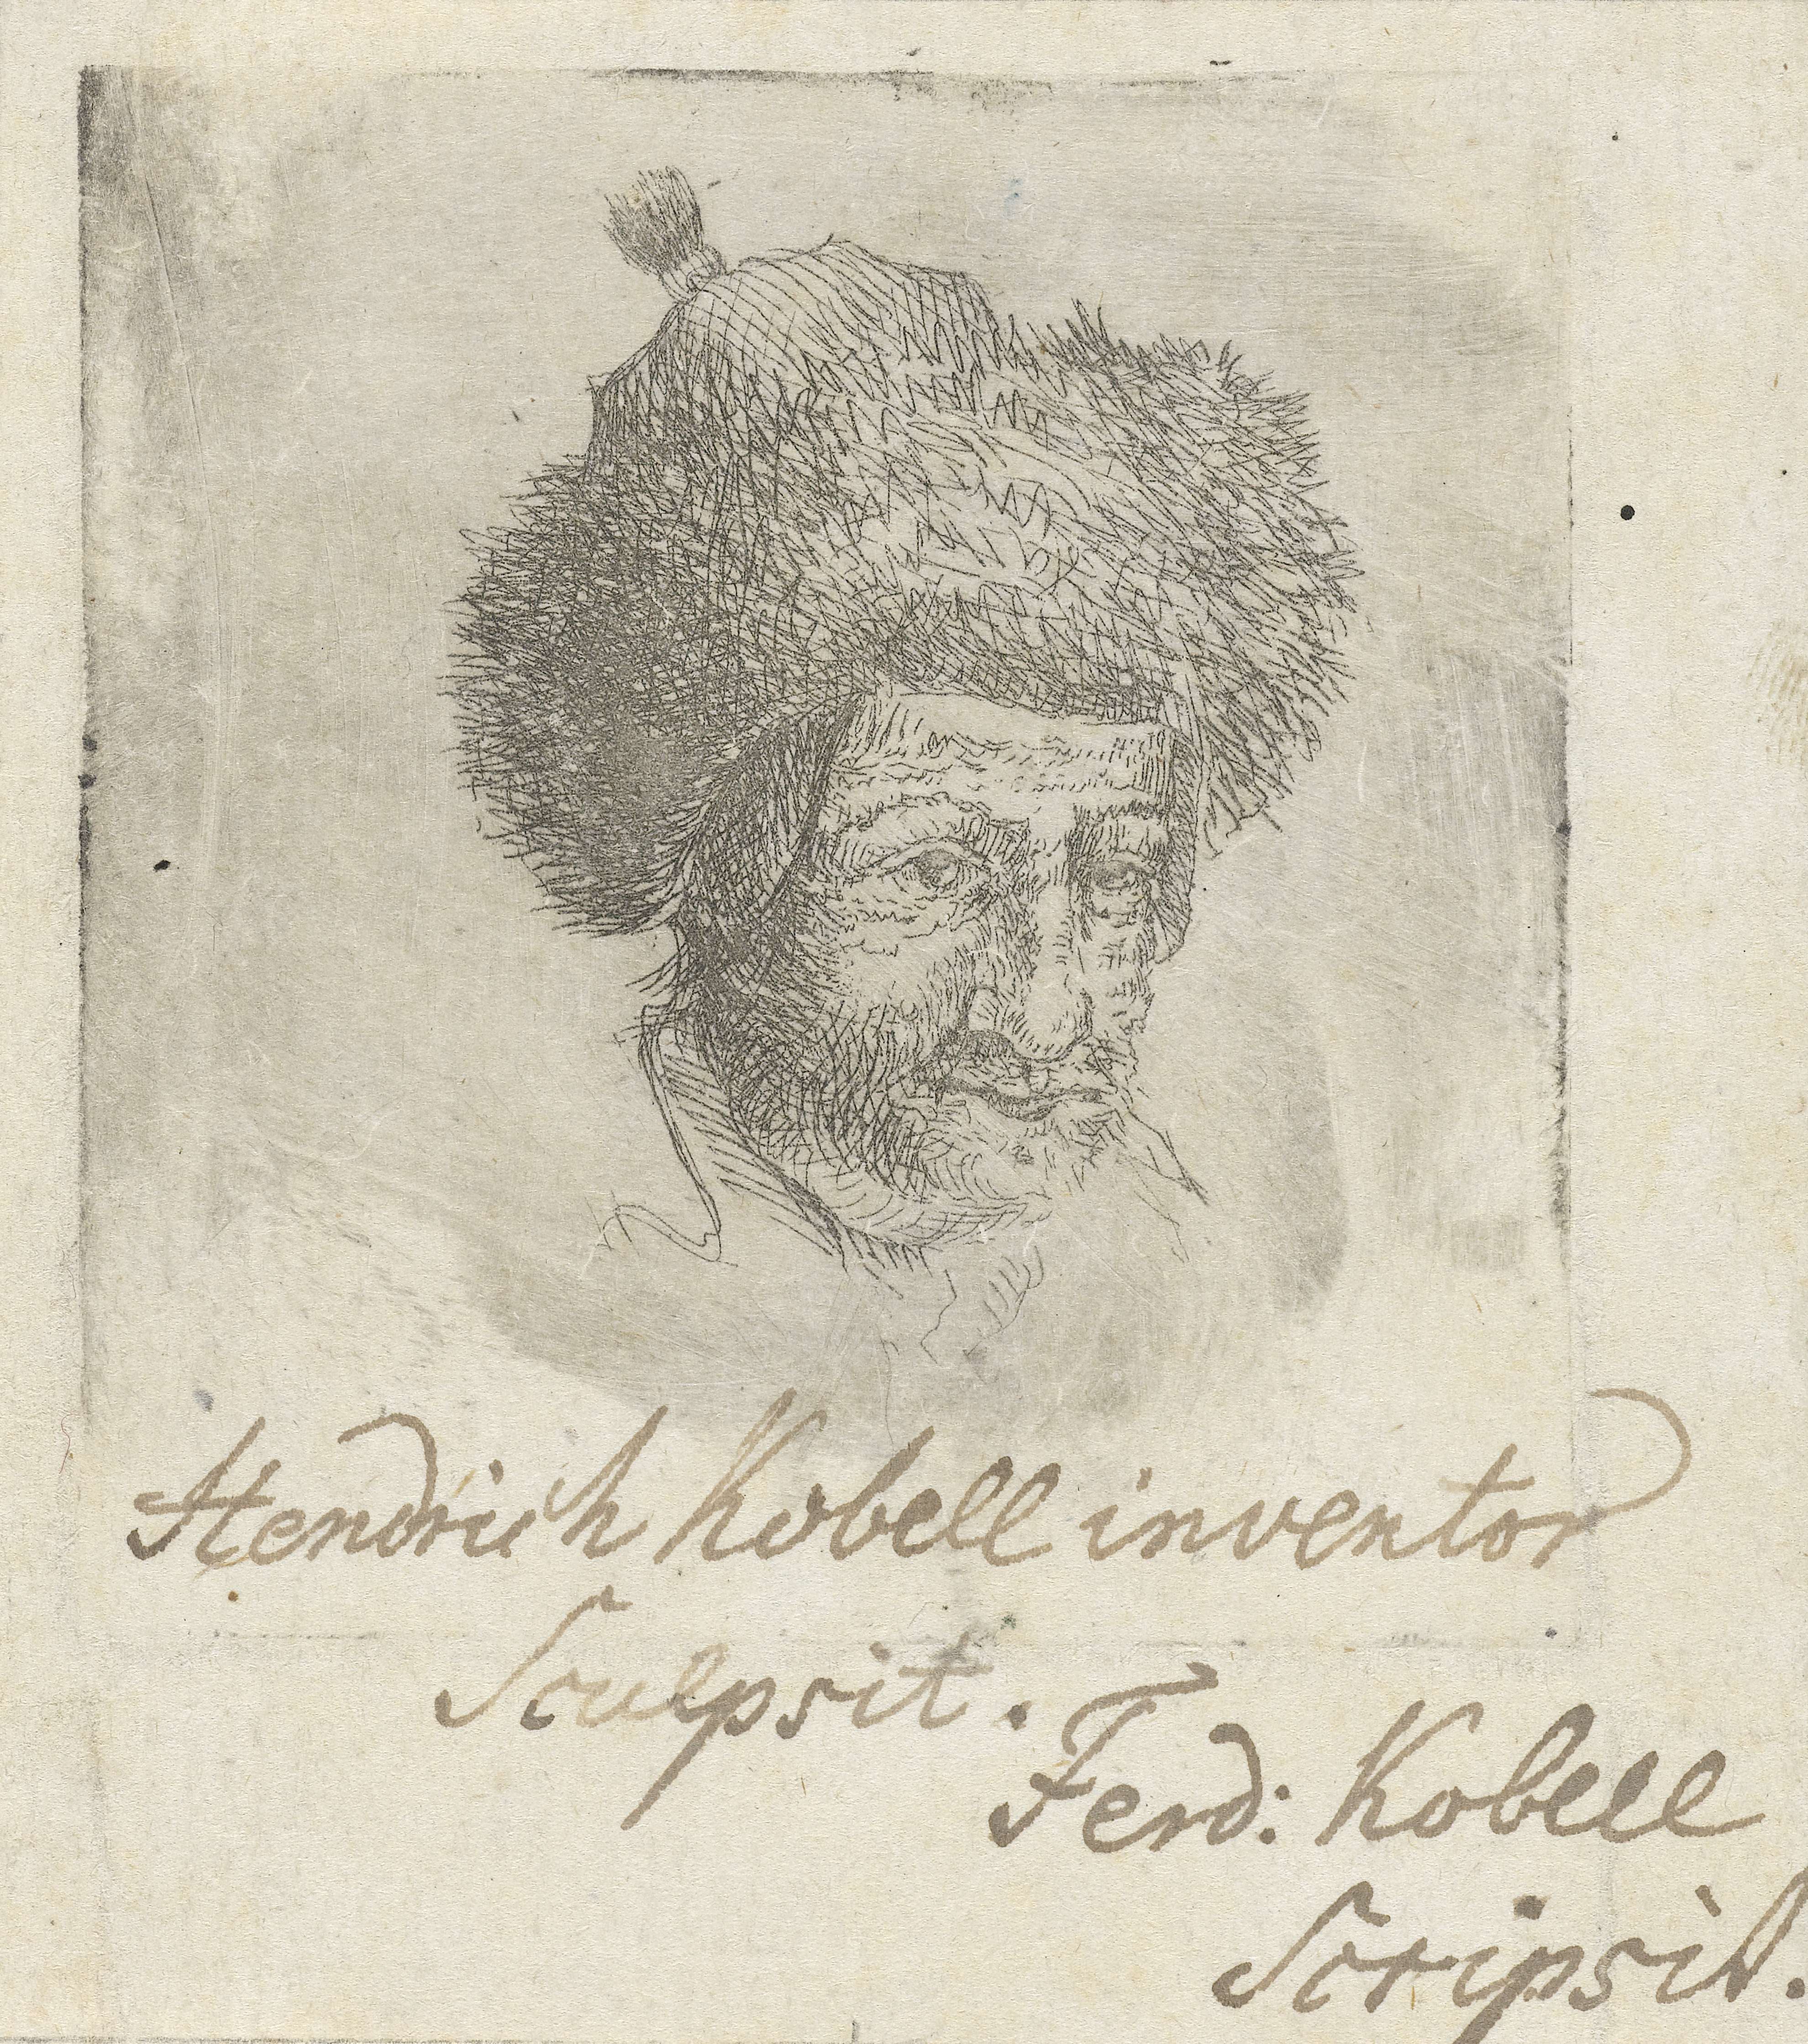 Hendrich Kobell inventor
Sculpsit.
Ferd: Kobell
Scripsit.